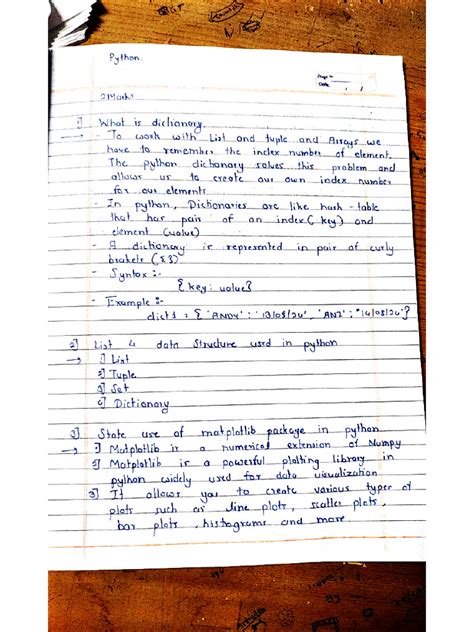 Python.
Page No
Date
2 Marks
1] What is dictionary.
→ - To work with List and tuple and Arrays we
have to remember the index number of element.
The python dictionary solves this problem and
allows us to create our own index number
for our elements.
- In python, Dictionaries are like hash-table
that has pair of an index (key) and
element (value)
- A dictionary is represented in pair of curly
brakets ({})
- Syntax :-
{key: value}
- Example :-
dict1 = {'ANDY' : '13/08/24',
2] List 4 data structure used in python
→ 1] List
2] Tuple
3] Set
4] Dictionary
3] State use of matplotlib package in python
→ 1] Matplotlib is a numerical extension of Numpy
2] Matplotlib is a powerful plotting library in
python widely used for data visualization
3] It allows you to create various types of
plots such as line plots, scatter plots,
bar plots, histograms and more